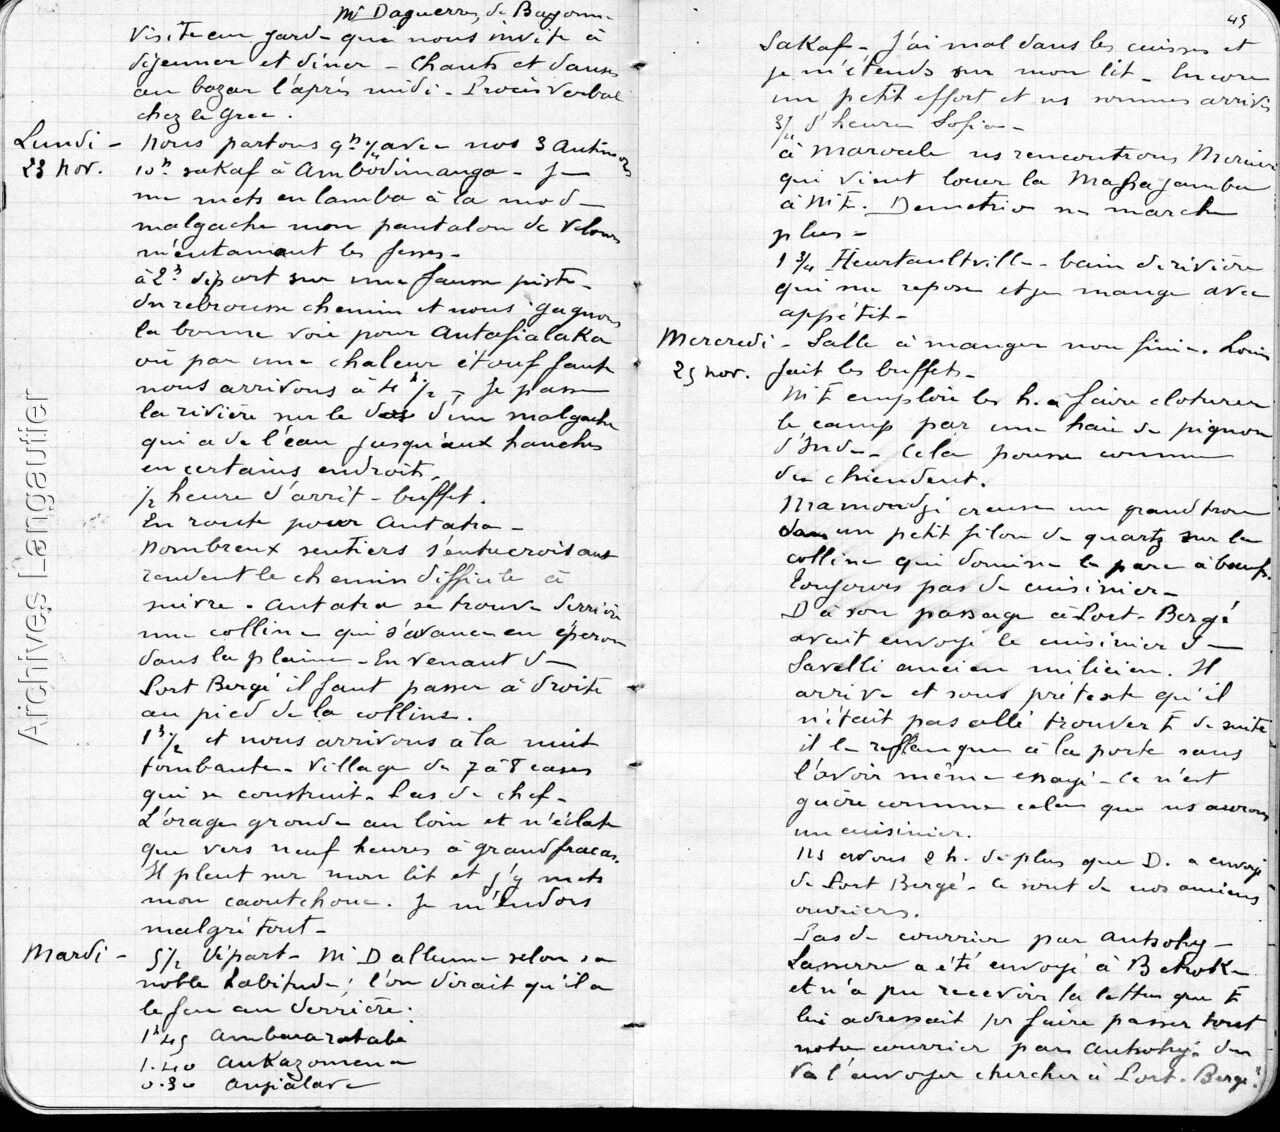 Mr Daguerre, de Bayonne
Visite au gard- qui nous invite à
déjeuner et diner - Chants et danses
au bazar l'après midi - Procès verbal
chez le grec.
Lundi - Nous partons 9h 1/4 avec nos 3
23 nov. 10h sakaf à Ambodimanga - Je
me mets en lamba à la mode
malgache mon pantalon de velours
m'entamant les fesses -
à 2h départ sur une fausse piste -
On rebrousse chemin et nous gagnons
la bonne voie pour Antafialaka
où par une chaleur étouffante
nous arrivons à 4h 1/2 - Je passe
la rivière sur le dos d'un malgache
qui a de l'eau jusqu'aux hanches
en certains endroits.
1/2 heure d'arrêt - buffet.
En route pour Antatra -
Nombreux sentiers s'entrecroisant
rendent le chemin difficile à
suivre - Antatra se trouve derrière
une colline qui s'avance en éperon
dans la plaine - En venant de
Port Bergé il faut passer à droite
au pied de la colline.
1h 1/2 et nous arrivons à la nuit
tombante - Village de 7 à 8 cases
qui se construit - Pas de chef -
L'orage gronde au loin et n'éclate
que vers neuf heures à grand fracas.
Il pleut sur mon lit et j'y mets
mon caoutchouc. Je m'endors
malgré tout -
Mardi - 5 1/2 Départ - Mr D allume selon sa
noble habitude; l'on dirait qu'il a
le feu au derrière.
1h 45
1.40 Ankazomena
0.30 Anjialava
45
Sakaf - J'ai mal dans les cuisses et
je m'étends sur mon lit - Encore
un petit effort et ns sommes arrivés
3/4 d'heure Sofia -
à Marovele ns rencontrons
qui vient louer la Mahajamba
à Mr F. Demetrio ne marche
plus -
1 3/4 Heurtaultville - bain de rivière
qui me repose et je mange avec
appétit -
Mercredi - Salle à manger non finie. Louis
25 nov. fait les buffets -
Mr F emploie les h. à faire cloturer
le camp par une haie de pignon
d'Inde - Cela pousse comme
du chiendent.
Mamondji creuse un grand trou
dans un petit filon de quartz sur la
colline qui domine le parc à boeufs.
Toujours pas de cuisinier -
D à son passage à Port-Bergé
avait envoyé le cuisinier de
Savelli ancien milicien. Il
arrive et sous prétexte qu'il
n'était pas allé trouver F de suite
il le reflanque à la porte sans
l'avoir même essayé - Ce n'est
guère comme cela que ns aurons
un cuisinier.
Ns avons 2 h. de plus que D. a envoyé
de Port Bergé - Ce sont de nos anciens
ouvriers.
Pas de courrier par Antsohy -
Lasserre a été envoyé à Betroka
et n'a pu recevoir la lettre que F
lui adressait pr faire passer tout
notre courrier par Antsohy. On
va l'envoyer chercher à Port-Bergé.
Archives Langautier